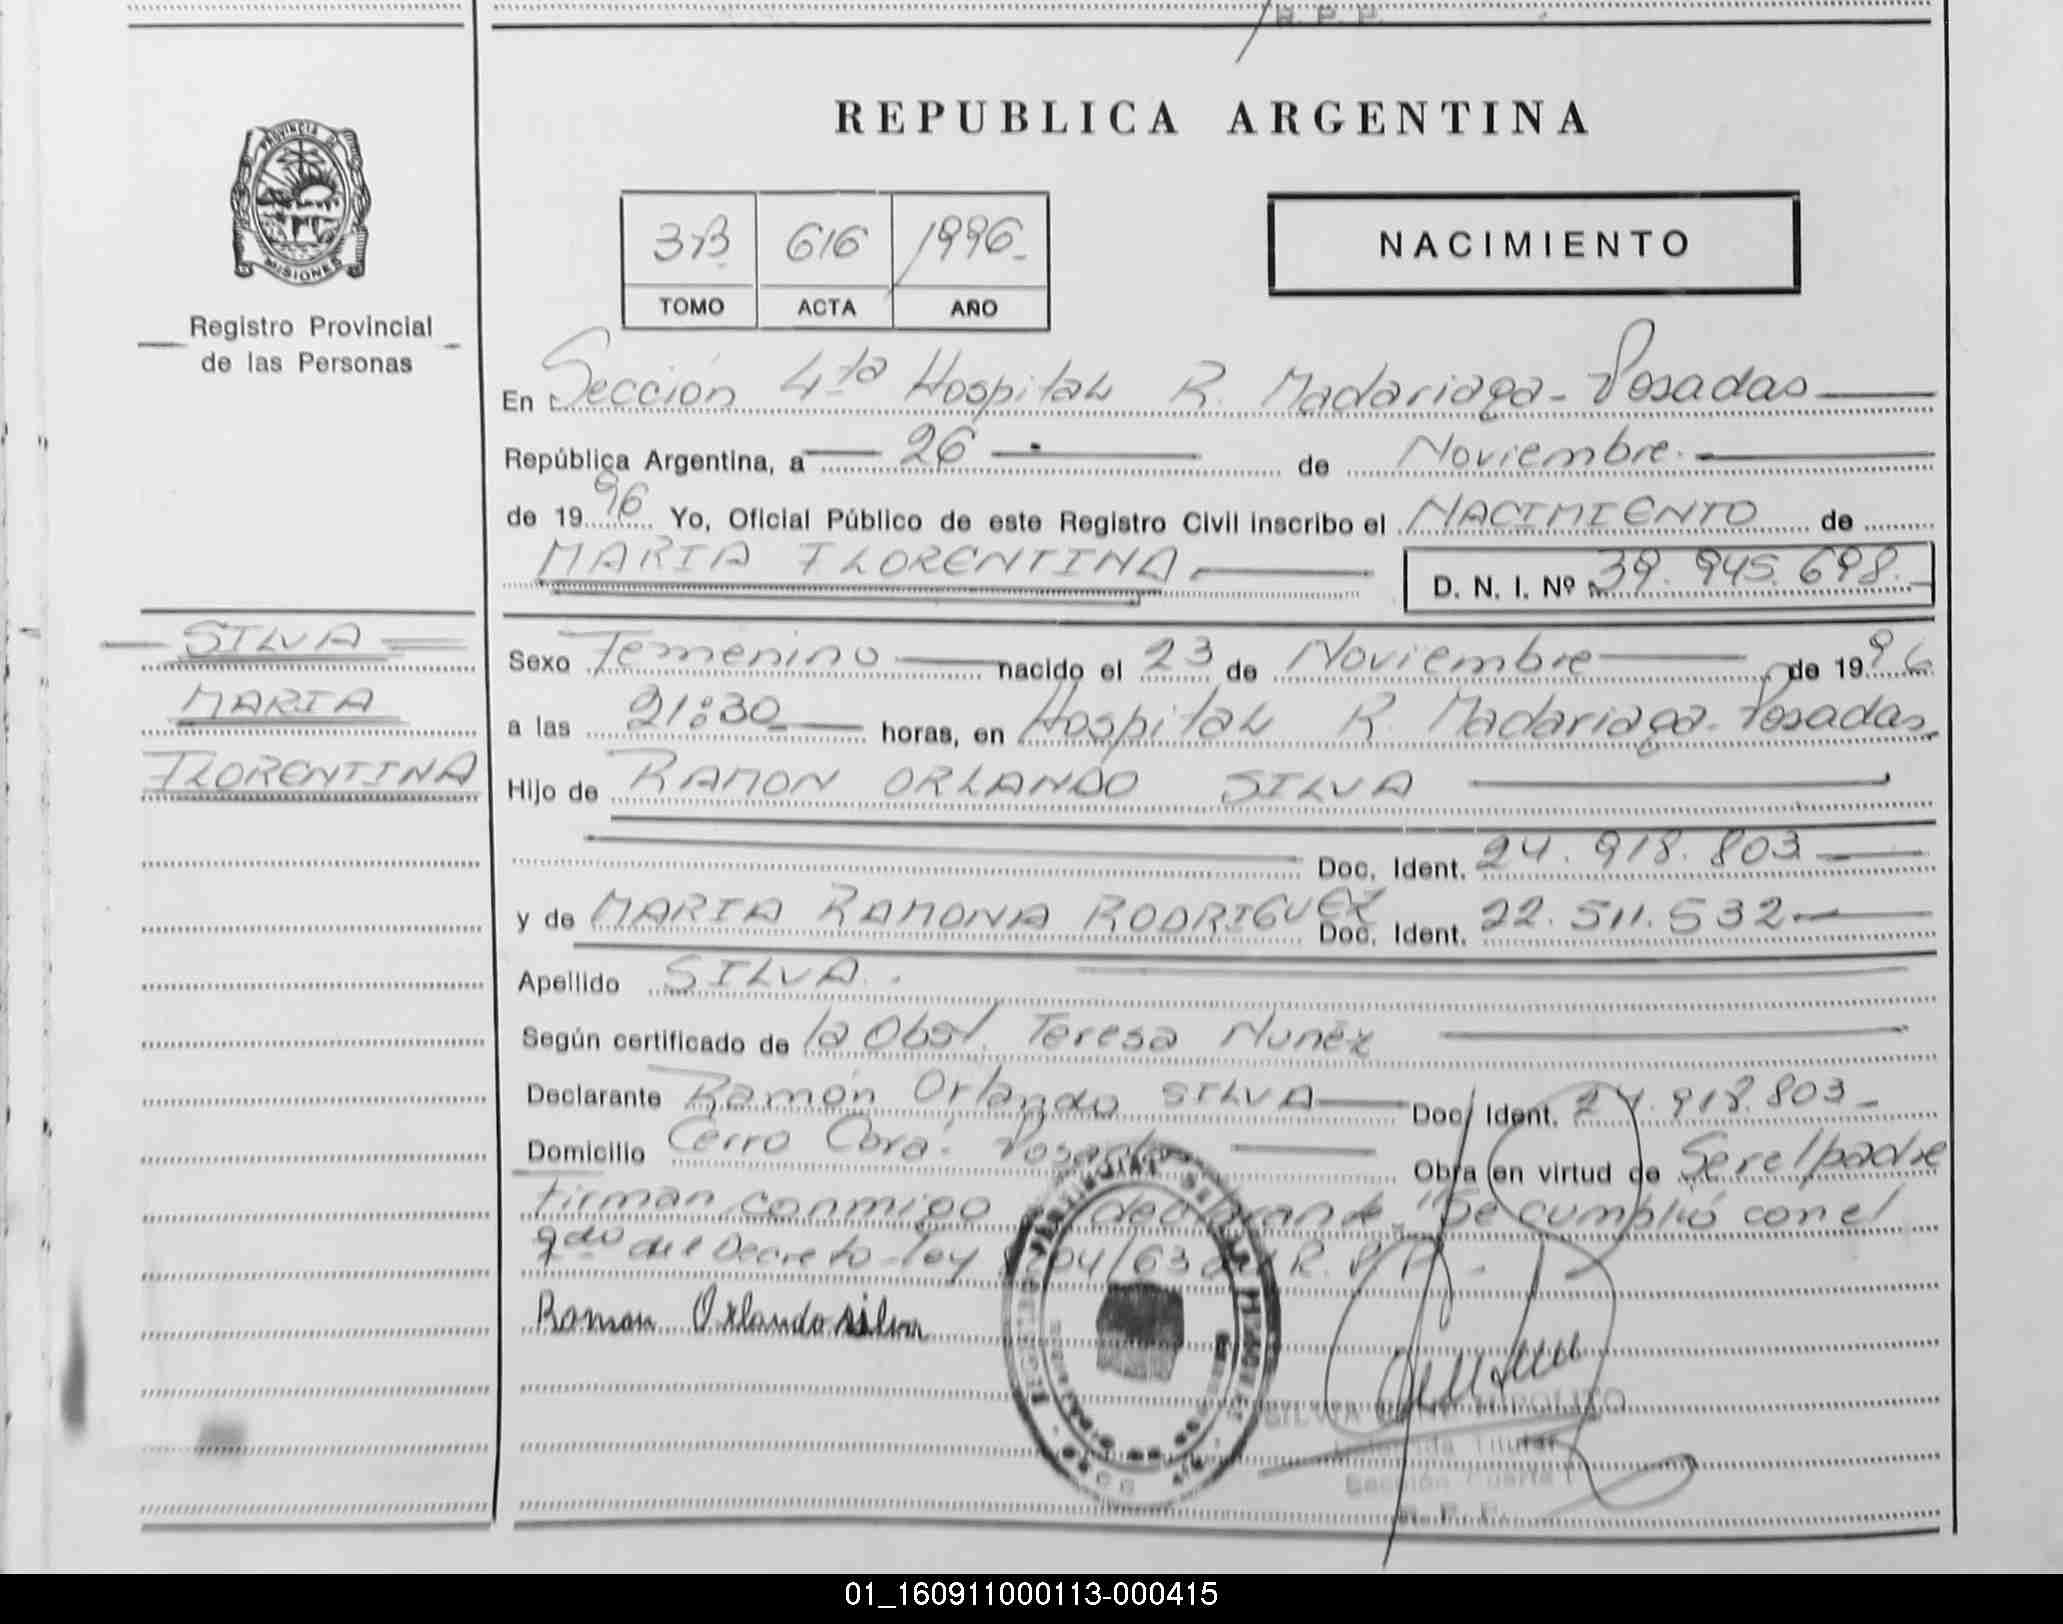 R. P. P.
REPUBLICA ARGENTINA
PROVINCIA DE
MISIONES
Registro Provincial
de las Personas
3ºB 616 1996
TOMO ACTA AÑO
NACIMIENTO
En Sección 4ta Hospital R. Madariaga - Posadas
República Argentina, a 26 de Noviembre
de 1996 Yo, Oficial Público de este Registro Civil inscribo el NACIMIENTO de
MARIA FLORENTINA D. N. I. Nº 39.945.698.
SILVA
MARIA
FLORENTINA
Sexo Femenino nacido el 23 de Noviembre de 1996
a las 21:30 horas, en Hospital R. Madariaga - Posadas
Hijo de RAMON ORLANDO SILVA
Doc. Ident. 24.918.803
y de MARIA RAMONA RODRIGUEZ Doc. Ident. 22.511.532
Apellido SILVA.
Según certificado de la Obst. Teresa Nuñez
Declarante Ramón Orlando SILVA Doc. Ident. 24.918.803
Domicilio Cerro Corá. Posadas Obra en virtud de Ser el padre
Firman conmigo declarante "Se cumplió con el
del Decreto-Ley 8204/63 R.P.P.
Ramon Orlando silva
HIPOLITO
Titular
Sección Cuarta
R. P. P.
01_160911000113-000415